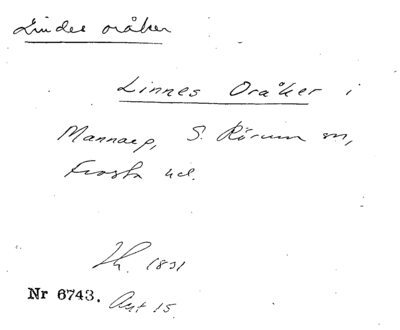 Lindes oråker
Linnes Oråker i
Mannarp, S. Rörum sn,
Frosta hd.
Th. 1831
Nr 6743. Akt 15.